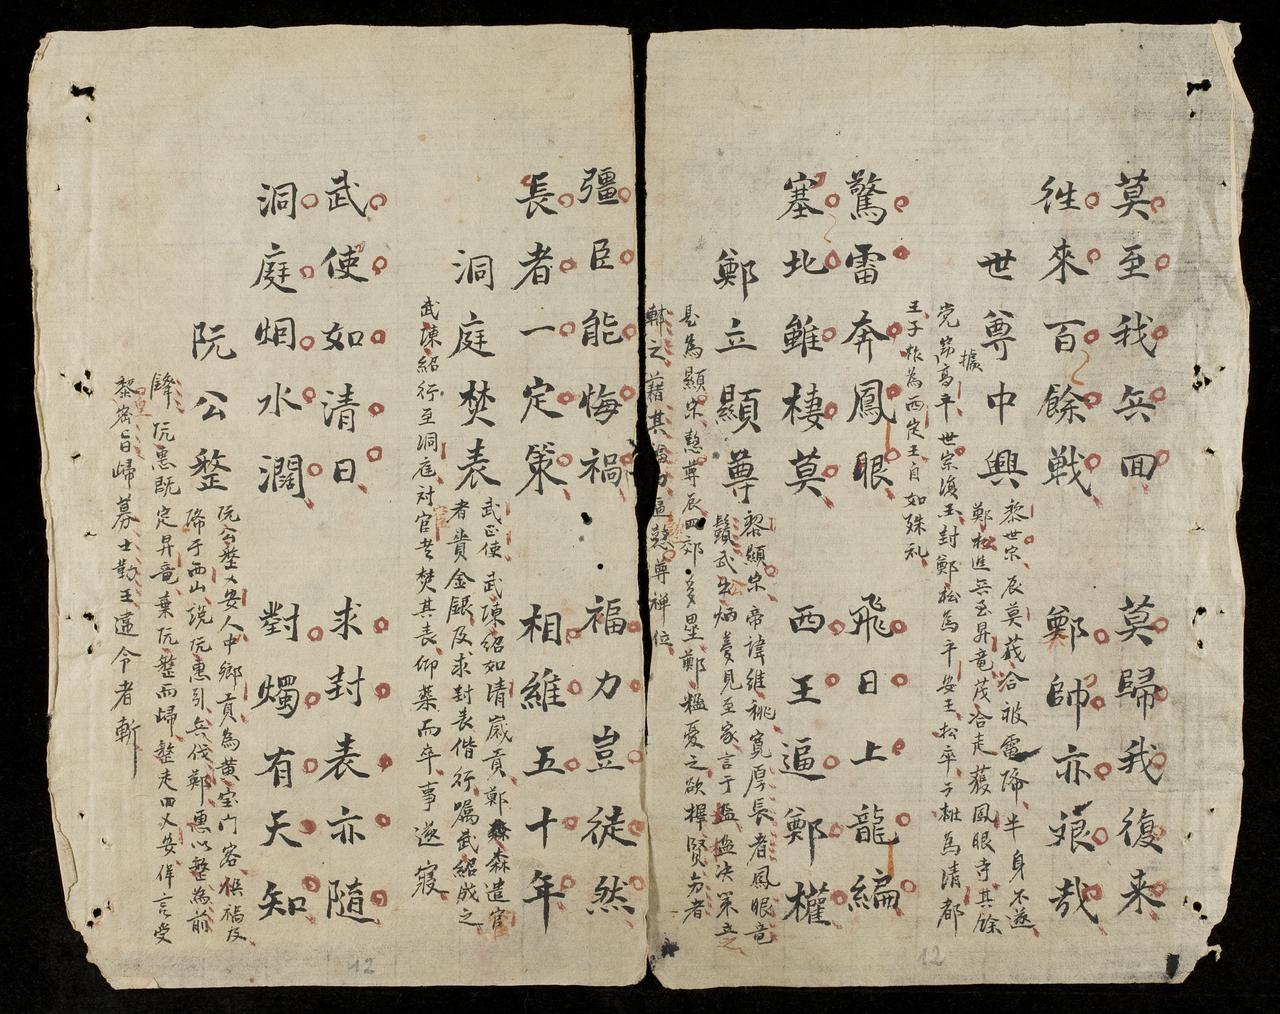 莫至我兵回 莫歸我復来
徃來百餘戦 鄭帥亦艰哉
世尊中興
黎世宗辰莫茂洽被雷降半身不遂
鄭松進兵至昇竜茂洽走獲鳳眼寺其餘
党芴據高平世宗復玉封鄭松為平安王松卒子椎為清都
王子根為西定王自如殊礼
驚雷奔鳳眼 飛日上龍編
塞北雖棲莫 西王逼鄭權
鄭立顯尊
黎顯宗帝諱維祧寬厚長者鳳眼竜
鬚武公炳夢見至家言于盃盃决策立之
是為顯宗愍尊辰四郊多壘鄭楹憂之欲擇賢安者
輔之藉其福力逼懿尊禅位
彊臣能悔禍 福力豈徒然
長者一定策 相維五十年
洞庭焚表
武正使武陳紹如清歲貢鄭森遣官
者賫金銀及求封表偕行嘱武紹成之
武陳紹行至洞庭对官者焚其表仰薬而卒事遂寢
武使如清日 求封表亦隨
洞庭烟水濶 對燭有天知
阮公整
阮公整乂安人中鄉貢為黄宝门客俱禍及
降于西山説阮惠引兵伐鄭惠以整為前
鋒阮惠既定昇竜棄阮整而歸整走回乂安佯言受
黎密旨歸募士勤王違令者斬
12
12